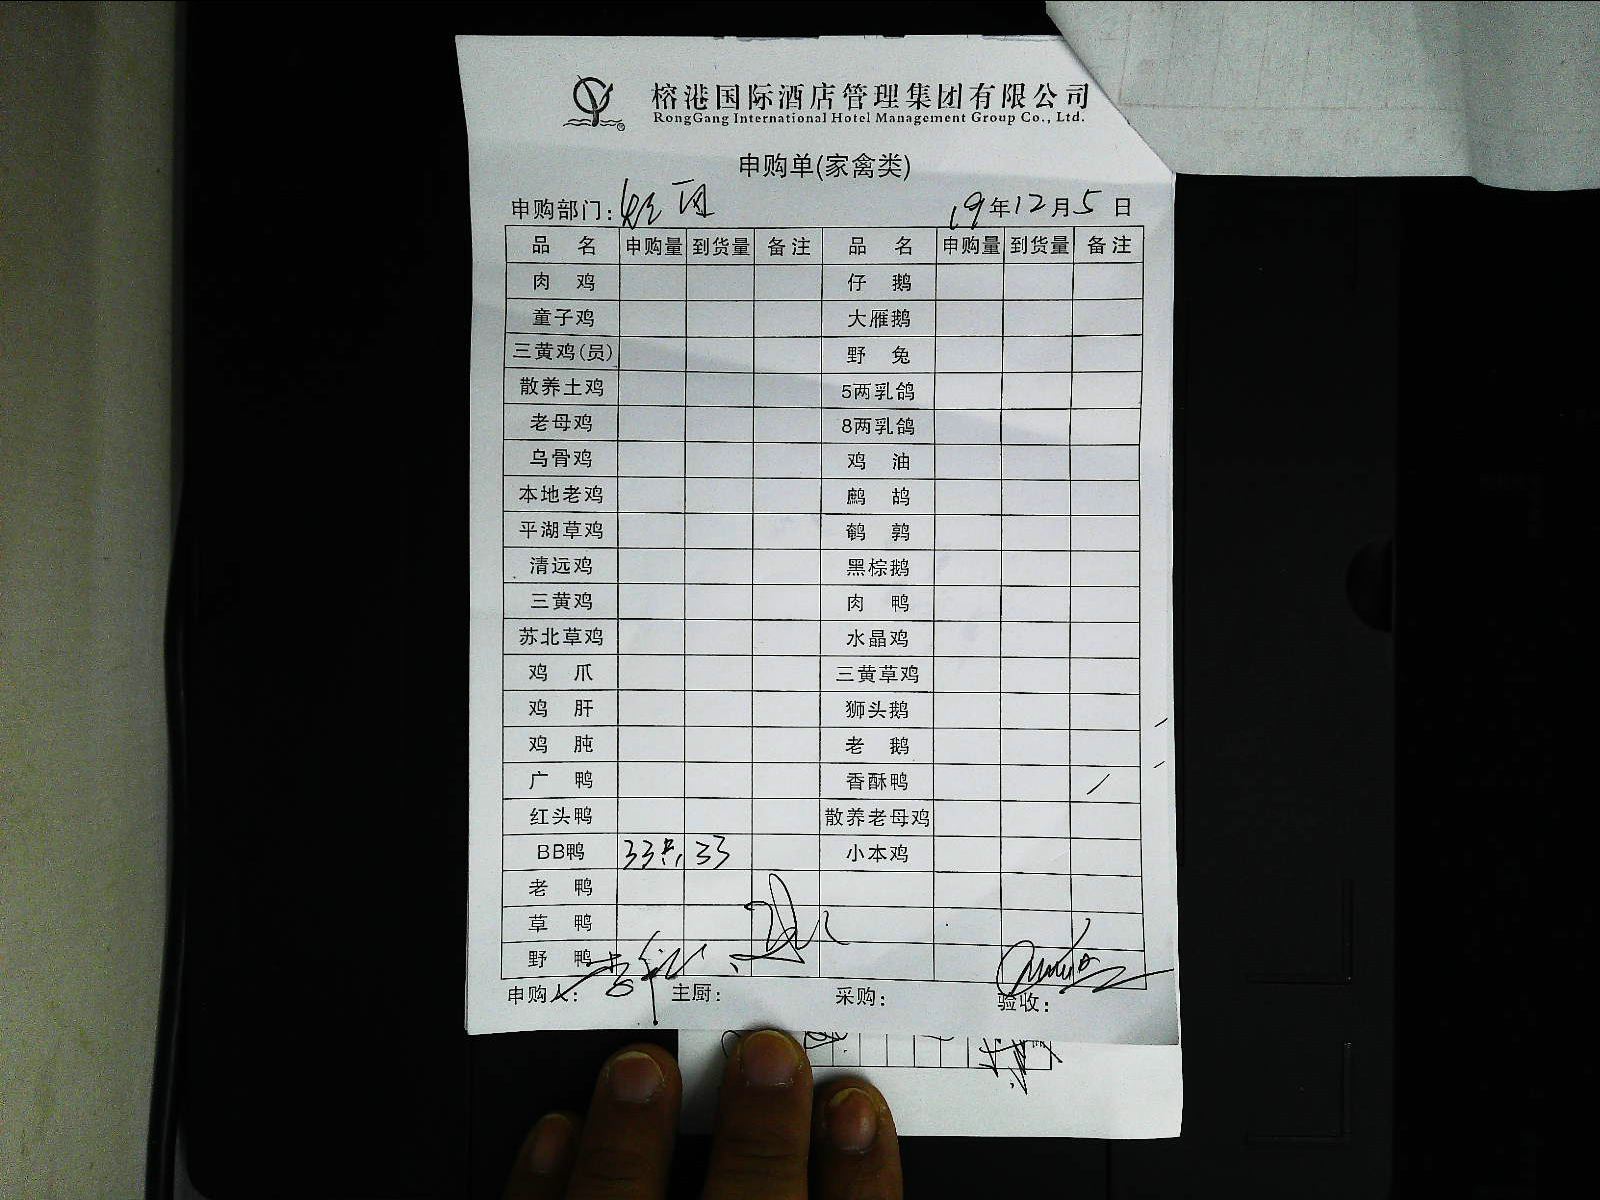 榕港国际酒店管理集团有限公司
RongGang International Hotel Management Group Co., Ltd.
申购单(家禽类)
申购部门: 19年12月5日
品名 申购量 到货量 备注 品名 申购量 到货量 备注
肉鸡 仔鹅
童子鸡 大雁鹅
三黄鸡(员) 野兔
散养土鸡 5两乳鸽
老母鸡 8两乳鸽
乌骨鸡 鸡油
本地老鸡 鹧鸪
平湖草鸡 鹌鹑
清远鸡 黑棕鹅
三黄鸡 肉鸭
苏北草鸡 水晶鸡
鸡爪 三黄草鸡
鸡肝 狮头鹅
鸡肫 老鹅
广鸭 香酥鸭
红头鸭 散养老母鸡
BB鸭 33只 33 小本鸡
老鸭
草鸭
野鸭
申购人: 主厨: 采购: 验收: